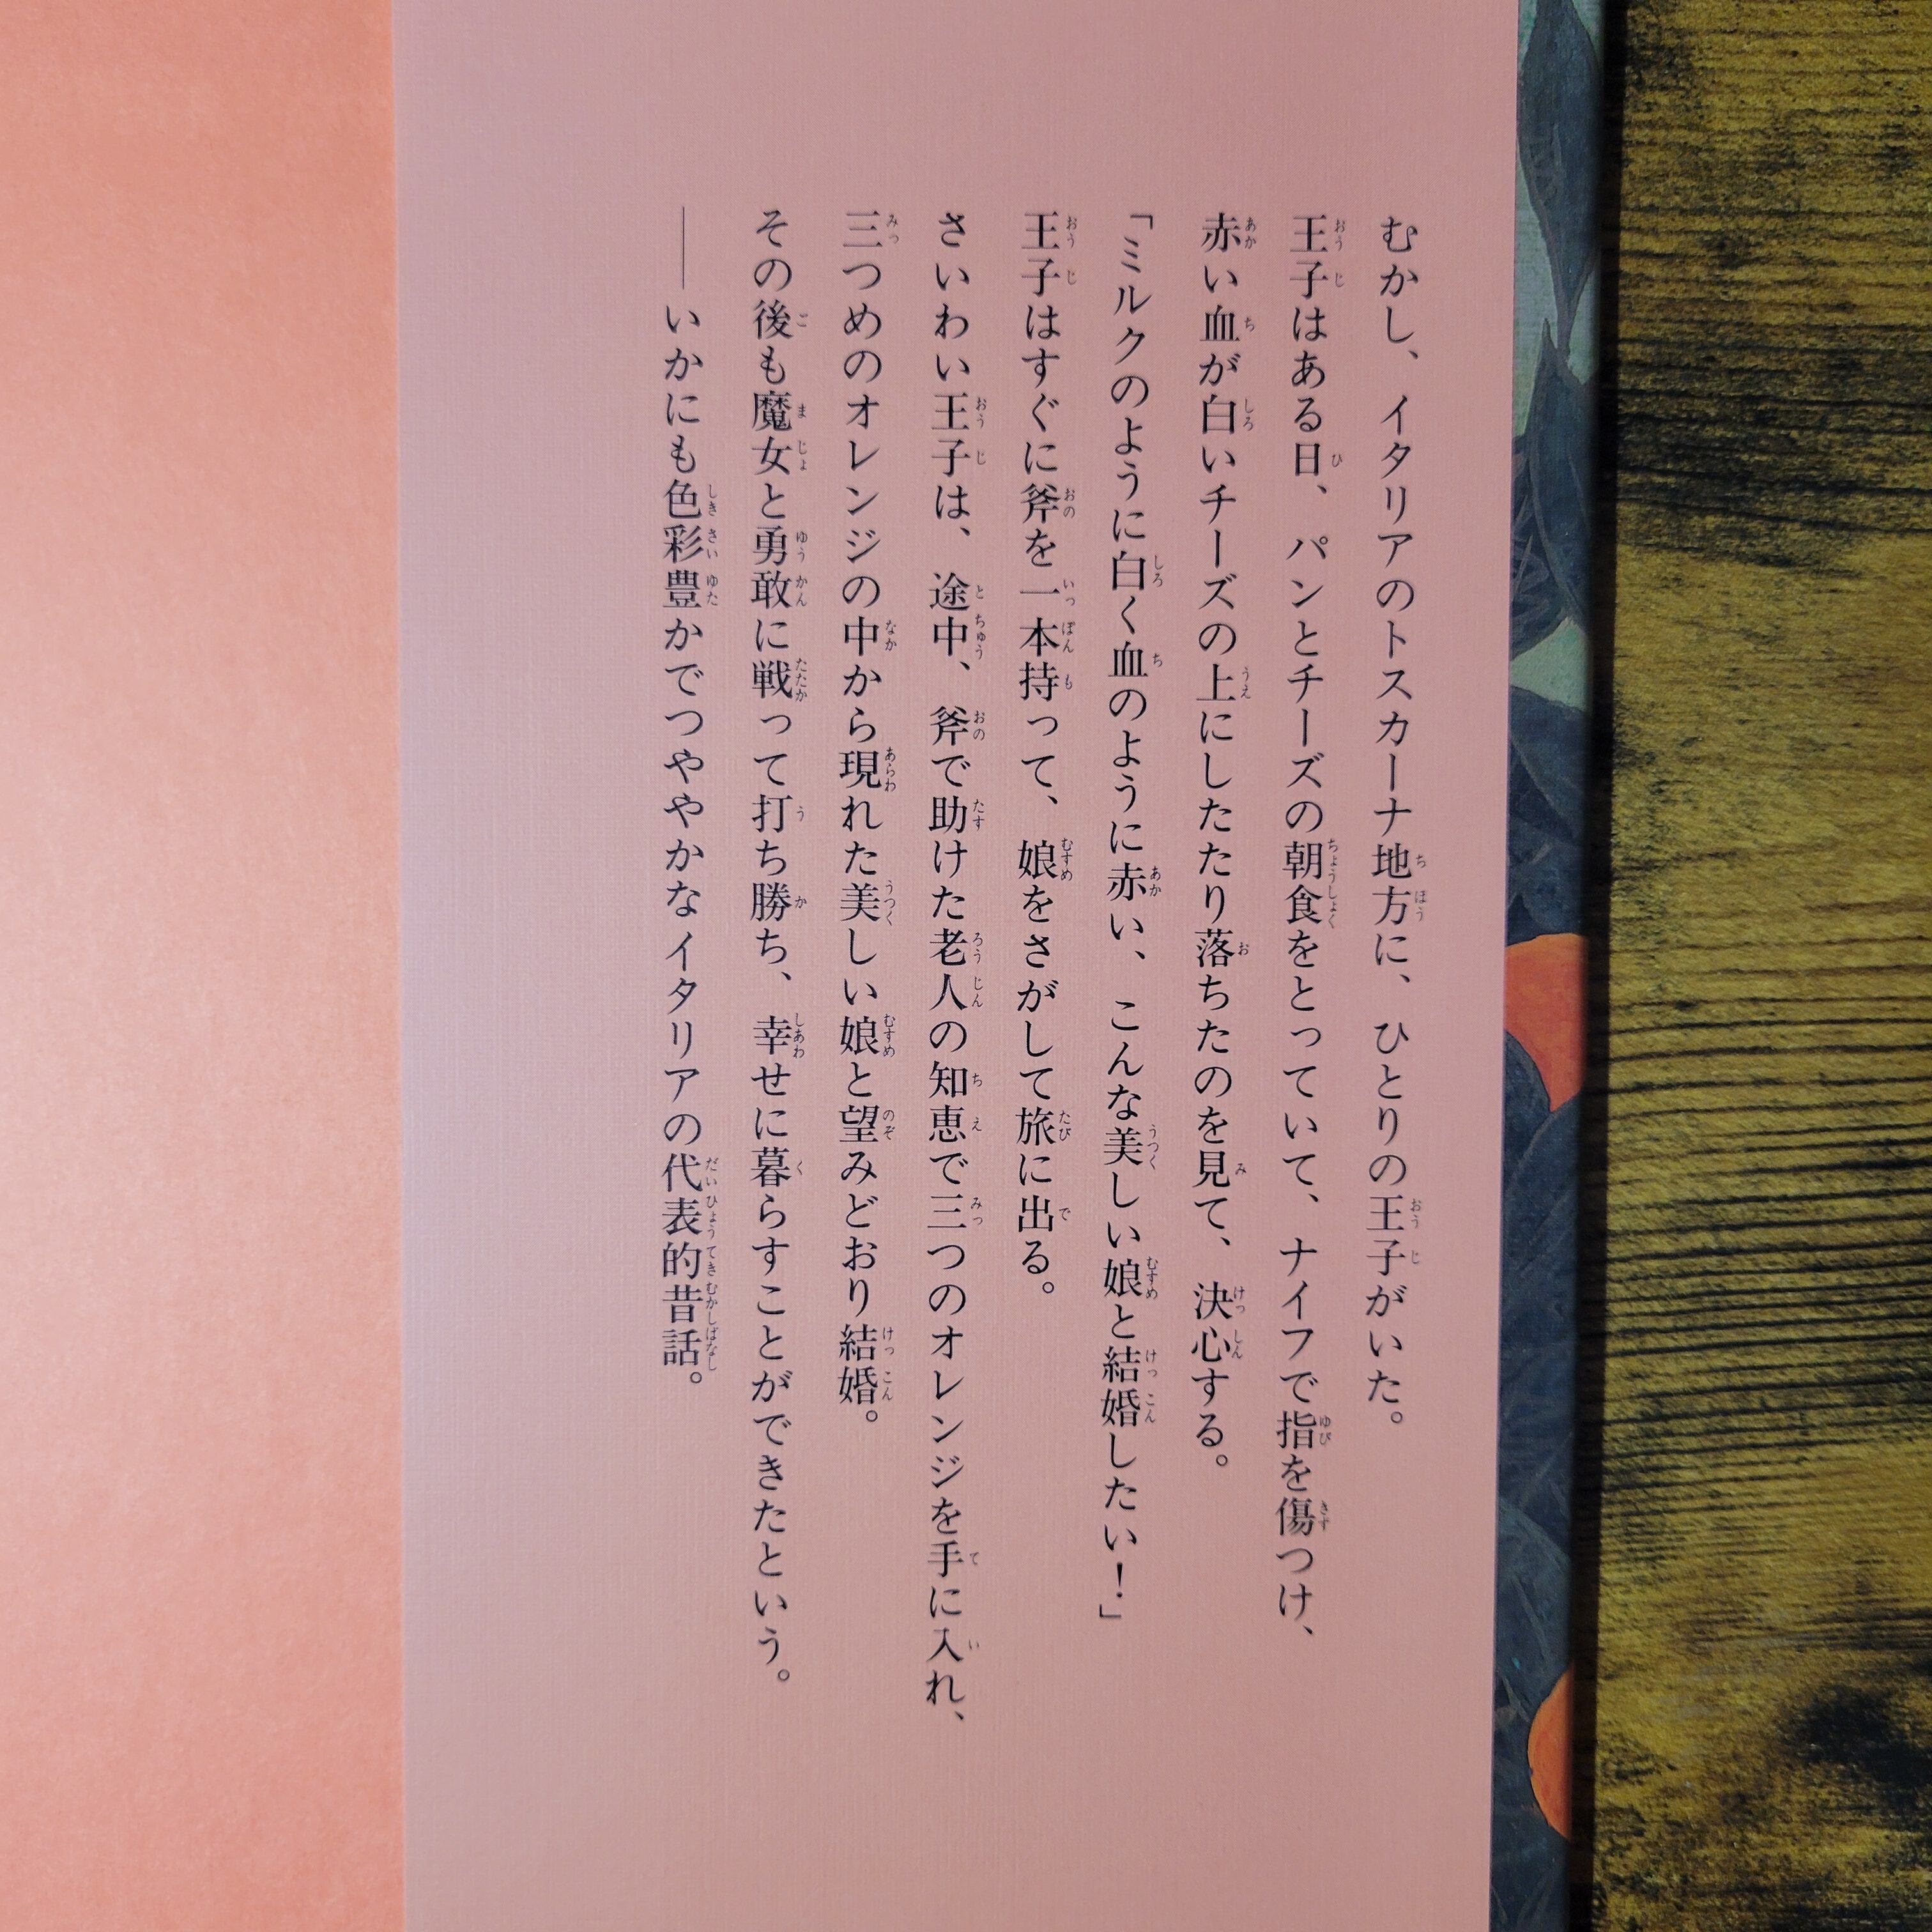 むかし、イタリアのトスカーナ地方に、ひとりの王子がいた。
王子はある日、パンとチーズの朝食をとっていて、ナイフで指を傷つけ、
赤い血が白いチーズの上にしたたり落ちたのを見て、決心する。
「ミルクのように白く血のように赤い、こんな美しい娘と結婚したい！」
王子はすぐに斧を一本持って、娘をさがして旅に出る。
さいわい王子は、途中、斧で助けた老人の知恵で三つのオレンジを手に入れ、
三つめのオレンジの中から現れた美しい娘と望みどおり結婚。
その後も魔女と勇敢に戦って打ち勝ち、幸せに暮らすことができたという。
――いかにも色彩豊かでつややかなイタリアの代表的昔話。